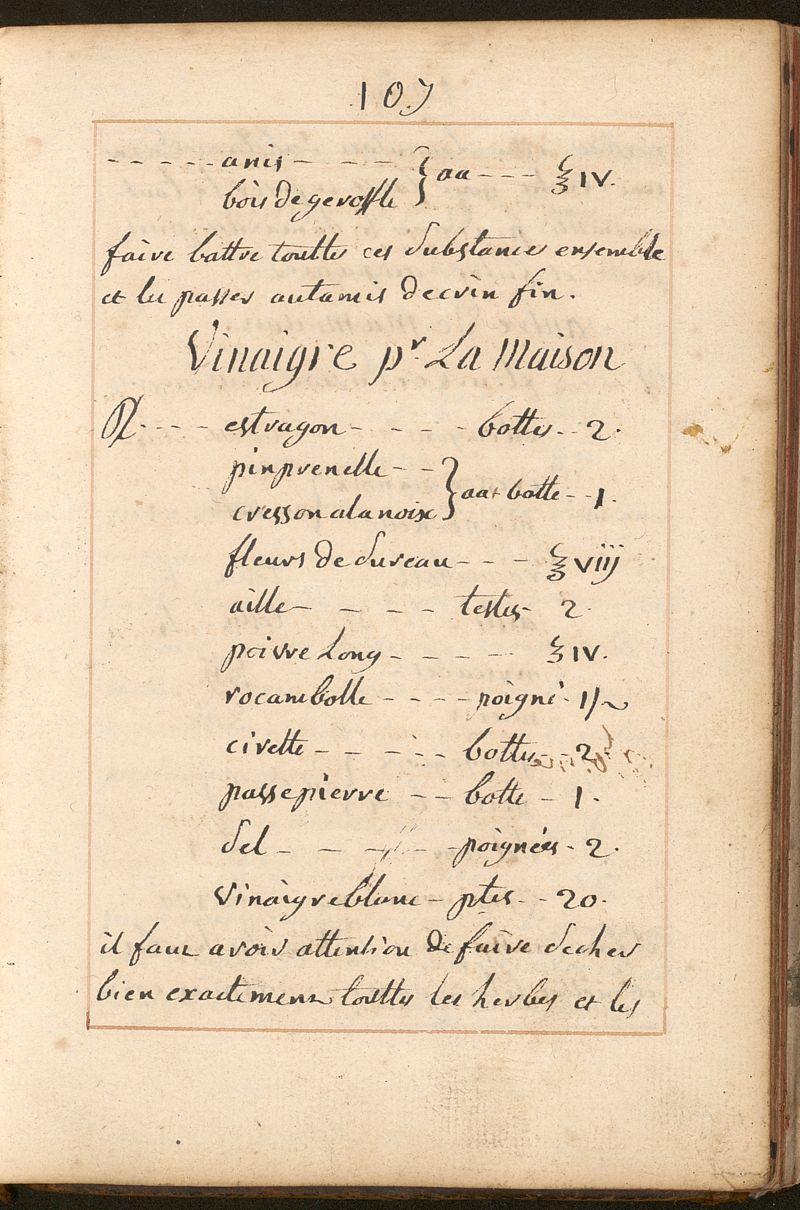 107
- - - - - anis - - - - } aa - - - ℥ IV.
bois de geroffle
faire battre touttes ces Substances ensemble
et les passer au tamis de crin fin.
Vinaigre pr. La Maison
℞ - - - - estragon - - - - - bottes - - 2.
pinprenelle - - } aa botte - - 1.
cresson alanoix
fleurs de Sureau - - - ℥ viij
aille - - - - testes - 2.
poivre Long - - - - - ℥ IV.
rocambolle - - - - poigné - 1/2
civette - - - - - bottes - - 2.
passepierre - - - botte - 1.
Sel - - - - - poignées - 2.
Vinaigre blanc - ptes - - 20.
il faut avoir attention de faire secher
bien exactement touttes les herbes et les